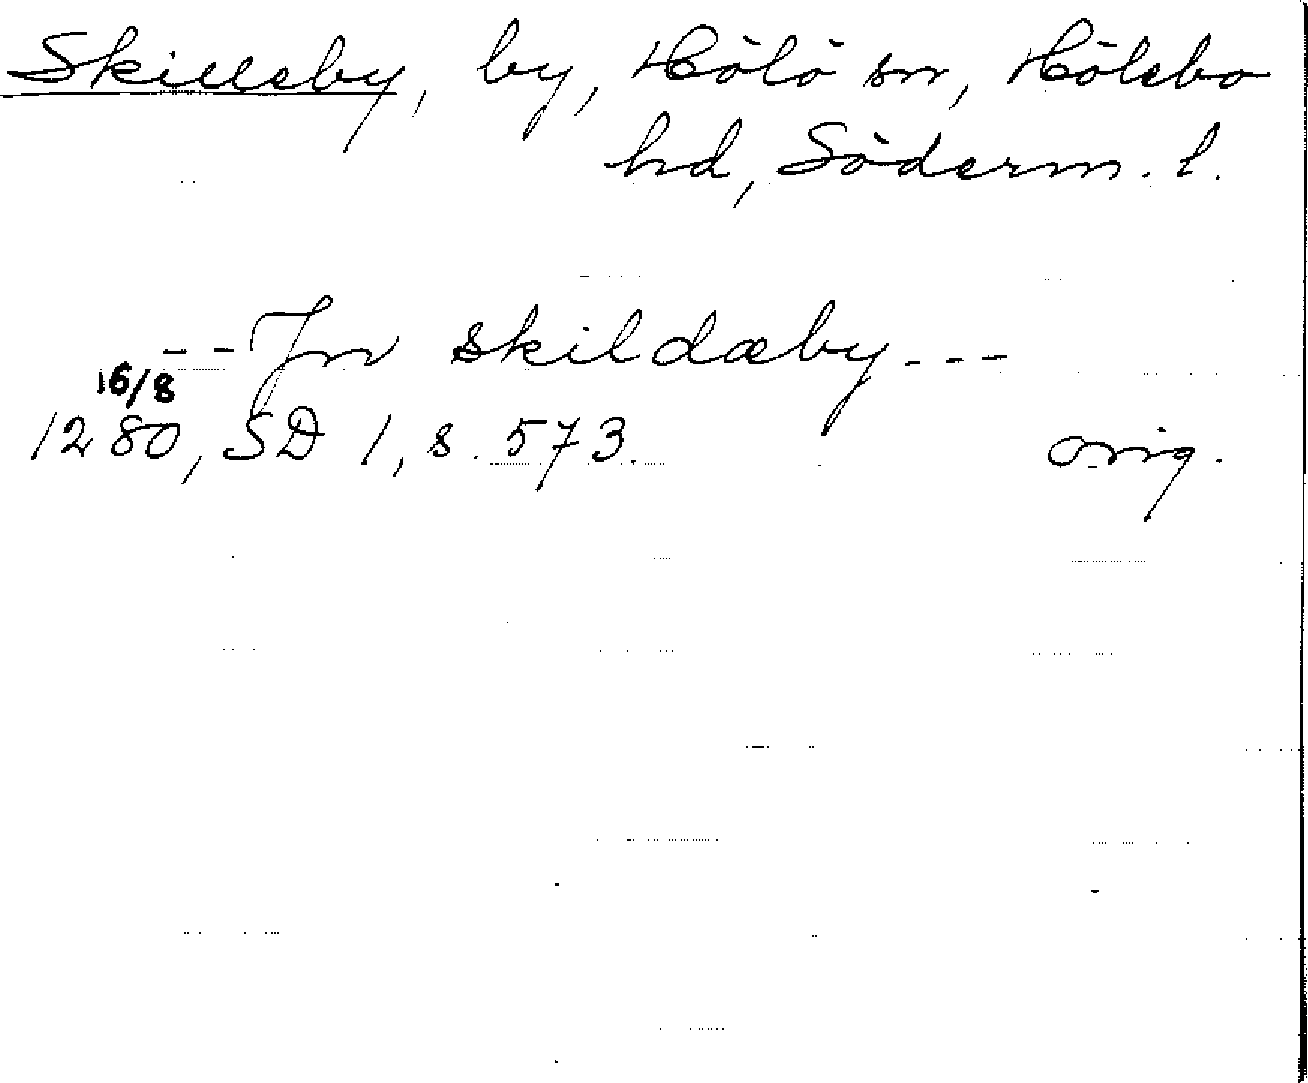 Skilleby, by, Hölö sn, Hölebo
hd, Söderm. l.
-- Jn skildæby ---
16/8
1280, SD 1, s. 573. orig.